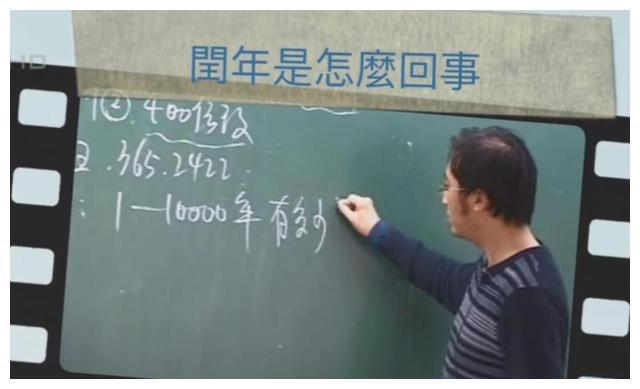 閏年是怎麼回事
② 400倍数
365.2422
1—10000年有多少